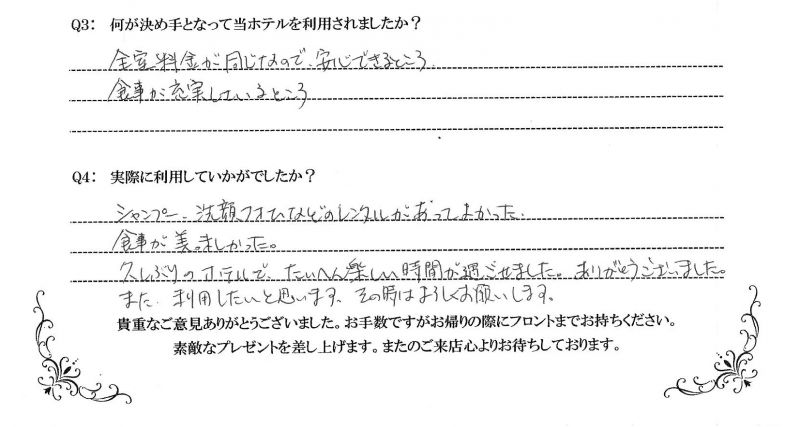 Q3: 何が決め手となって当ホテルを利用されましたか？
全室料金が同じなので、安心できるところ
食事が充実しているところ
Q4: 実際に利用していかがでしたか？
シャンプー、洗顔フォームなどのレンタルがあってよかった。
食事が美味しかった。
久しぶりのホテルで、たいへん楽しい時間が過ごせました。ありがとうございました。
また、利用したいと思います、その時はよろしくお願いします。
貴重なご意見ありがとうございました。お手数ですがお帰りの際にフロントまでお持ちください。
素敵なプレゼントを差し上げます。またのご来店心よりお待ちしております。